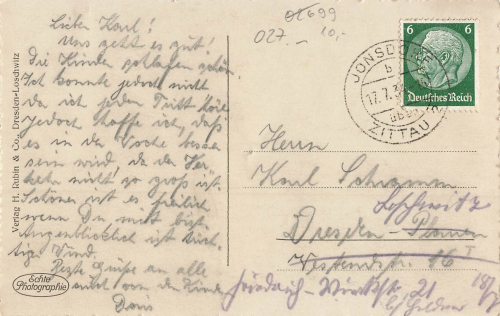 Lieber Karl!
Uns geht es gut!
Die Kinder schlafen schön.
Ich konnte jedoch nicht
da ich jeden Tritt höre
Jedoch hoffe ich, daß
es in der Woche besser
sein wird, da der Ver-
kehr nicht so groß ist.
Schöner ist es freilich
wenn Du mit bist.
Augenblicklich ist tüch-
tiger Wind.
Beste Grüße an alle
nicht von den Kindern
Doris
Verlag H. Rubin & Co., Dresden-Loschwitz
Echte
Photographie
02699
027.—
10,-
6 6
Deutsches Reich
JONSDORF
b
17.7.3
ZITTAU
Herrn
Karl
Loschwitz
Dresden-Plauen
Westendstr. 16 I
Friedrich-Wieckstr. 21
b/